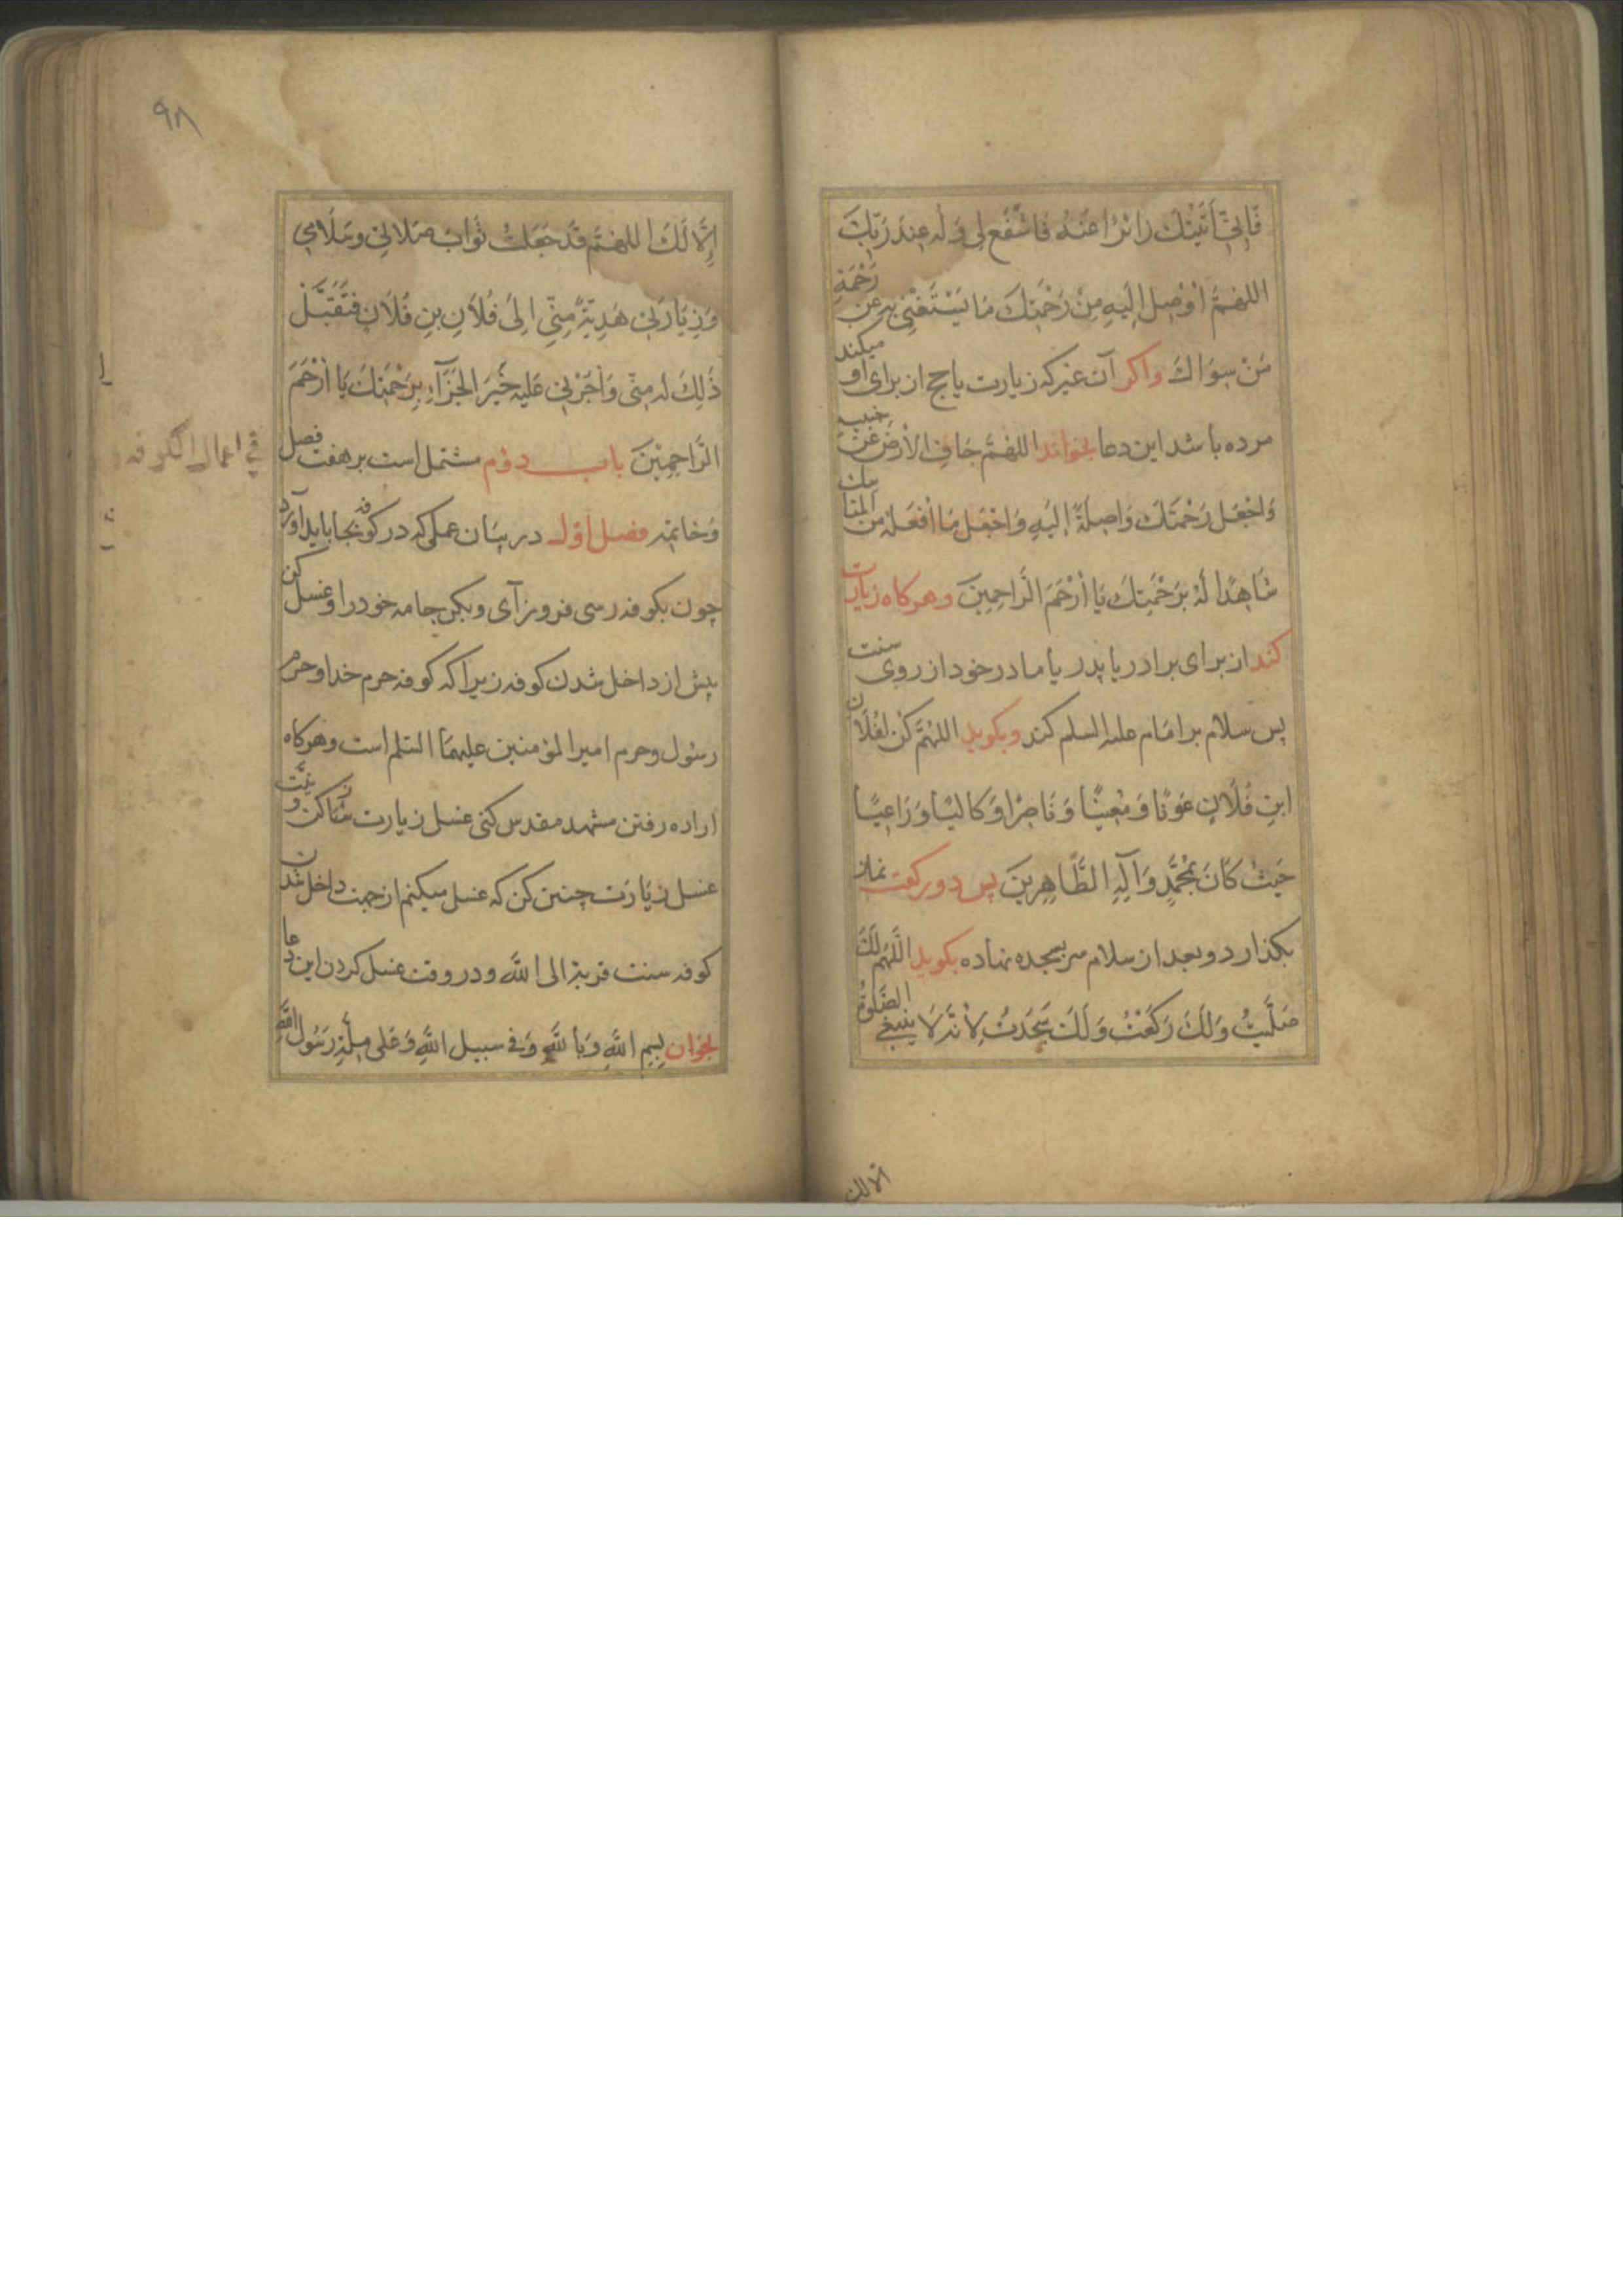 فَاِنّي أَتَيْتُكَ زائِرًا عَنْهُ فَاشْفَع لي وَلَه عِندَ رَبِّكَ
اللهُمَّ اَوْصِل اِلَيهِ مِنْ رَحْمَتِكَ مَا يَسْتَغْنِي بِهِ عَن رَحْمَةِ
مَنْ سِوَاكَ واكر آن غير كه زيارت يا حج از براى او ميكند
مرده باشد اين دعا بخواند اللهُمَّ جَافِ الاَرْضَ عَنْ جَنبيهِ
وَاجْعَل رَحْمَتَكَ وَاصِلَةً اِلَيهِ وَاجْعَل مَا اَفْعَلهُ من المناسك
شَاهِدًا لَهُ بِرَحْمَتِكَ يَا أَرْحَمَ الرَّاحِمِينَ وهركاه زيارت
كند از براى برادر يا پدر يا مادر خود از روى سنت
پس سلام بر امام عليه السلم كند وبكويد اللهُمَّ كُنْ لِفُلَانِ
ابنِ فُلَانٍ عَوْنًا وَمُعِينًا وَنَاصِرًا وَكَالِيًا وَرَاعِيًا
حَيْثُ كَانَ بِمُحَمَّدٍ وَآلِهِ الطَّاهِرِينَ پس دو ركعت نماز
بكذارد وبعد از سلام سر بسجده نهاده بكويد اللَّهُمَّ لَكَ
صَلَّيتُ وَلَكَ رَكَعْتُ وَلَكَ سَجَدتُ لِأَنَّهُ لَا ينبغي الصَّلوةُ
الّا لك
٩٨
اِلَّا لَكَ اللهُمَّ قَد جَعَلتُ ثَوَابَ صَلَاتي وسَلَامي
وَزِيَارَتي هَدِيَّةً مِنّي اِلىٰ فُلَانِ بنِ فُلَانٍ فَتَقَبَّل
ذَلِكَ لَه مِنّي وَاَجِرْني عَلَيهِ خَيرَ الجَزَآءِ بِرَحْمَتِكَ يَا اَرْحَمَ
الرَّاحِمِيْنَ باب دوم مشتمل است بر هفت فصل
وخاتمه فصل اول در بيان عملى كه در كوفه بجا بايد آورد
چون بكوفه رسى فروز آى وبكن جامه خود را وغسل كن
پيش از داخل شدن كوفه زيرا كه كوفه حرم خدا وحرم
رسول وحرم امير المؤمنين عليهما السلم است وهركاه
اراده رفتن مشهد مقدس كنى غسل زيارت كن ونيّت
غسل زيارت چنين كن كه غسل ميكنم از جهت داخل شدن
كوفه سنت قربة الى الله ودر وقت غسل كردن اين دعا
بخوان بِسِمِ اللهِ وَبِاللهِ وَفي سبيل اللهِ وَعَلى مِلَّةِ رَسُولِ اللهِ
في اعمال الكوفه